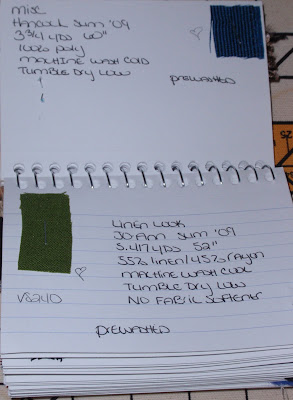 misc
Hancock Sum '09
3 3/4 yds 60"
100% poly
machine wash cold
Tumble Dry Low
prewashed
Linen Look
JO-Ann Sum '09
5.417 yds 52"
55% linen/45% rayon
machine wash cool
Tumble Dry Low
NO Fabric Softener
V8240
prewashed